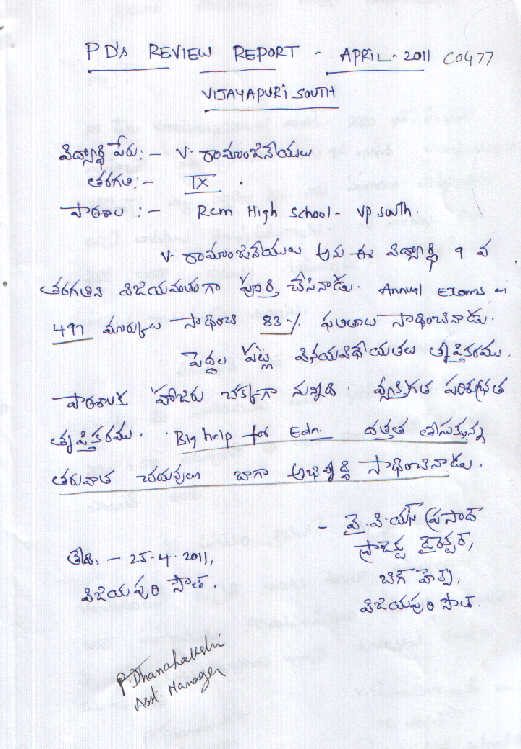 PD's REVIEW REPORT - APRIL-2011 C0477
VIJAYAPURI SOUTH
విద్యార్థి పేరు:- V. రామాంజనేయులు
తరగతి:- IX.
పాఠశాల :- Rcm High School- VP South.
V. రామాంజనేయులు అను ఈ విద్యార్థి 9 వ
తరగతిని విజయవంతంగా పూర్తి చేసినాడు. Annual Exams లో
497 మార్కులు సాధించి 83% ఫలితాలు సాధించినాడు.
పెద్దల పట్ల వినయవిధేయతలు తృప్తికరము.
పాఠశాలకు హాజరు చక్కగా నున్నది. వ్యక్తిగత పరిశుభ్రత
తృప్తికరము. Big help for Edn. దత్తత తీసుకున్న
తరువాత చదువులో బాగా అభివృద్ధి సాధించినాడు.
- వై.వి.యస్ ప్రసాద్
ప్రాజెక్టు డైరెక్టర్,
తేది. - 25-4-2011,
బిగ్ హెల్ప్,
విజయపురి సౌత్.
విజయపురి సౌత్.
P Dhanalakshmi
Asst Manager